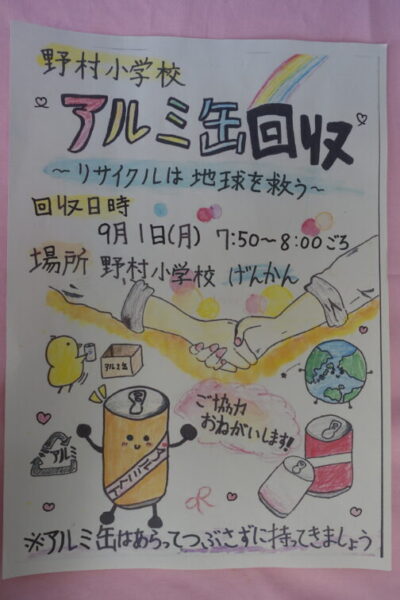 野村小学校
アルミ缶回収
～リサイクルは地球を救う～
回収日時
9月1日(月) 7:50～8:00ごろ
場所 野村小学校 げんかん
アルミ缶
アルミ
アルミカン
ご協力
おねがいします!!
※アルミ缶はあらってつぶさずに持ってきましょう